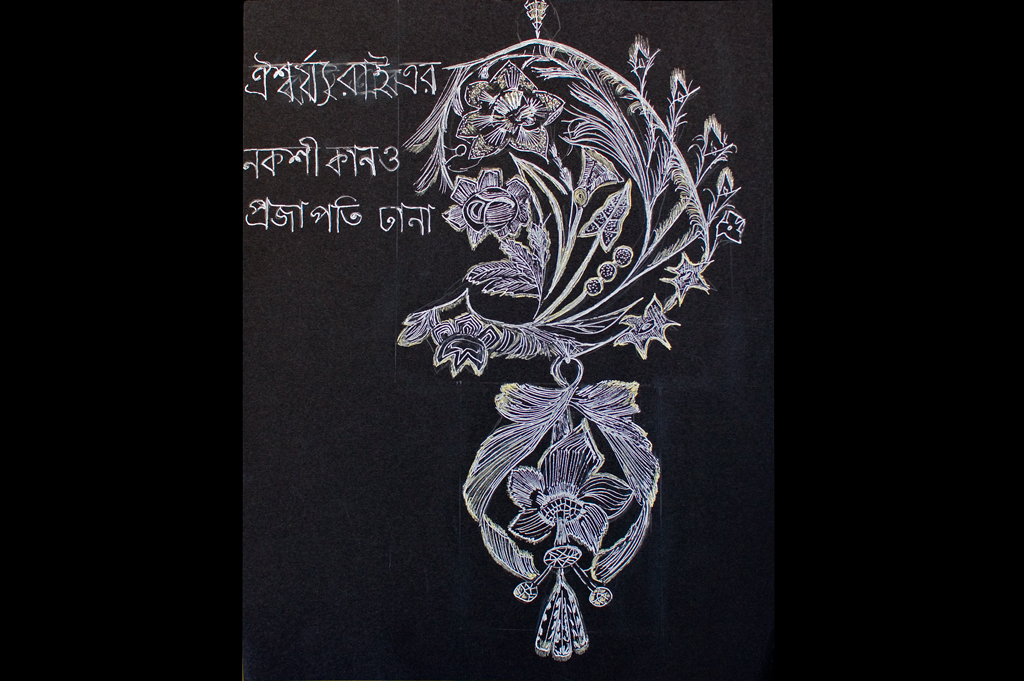 ঐশ্বর্য্য রাই এর
নকশী কান ও
প্রজাপতি টানা